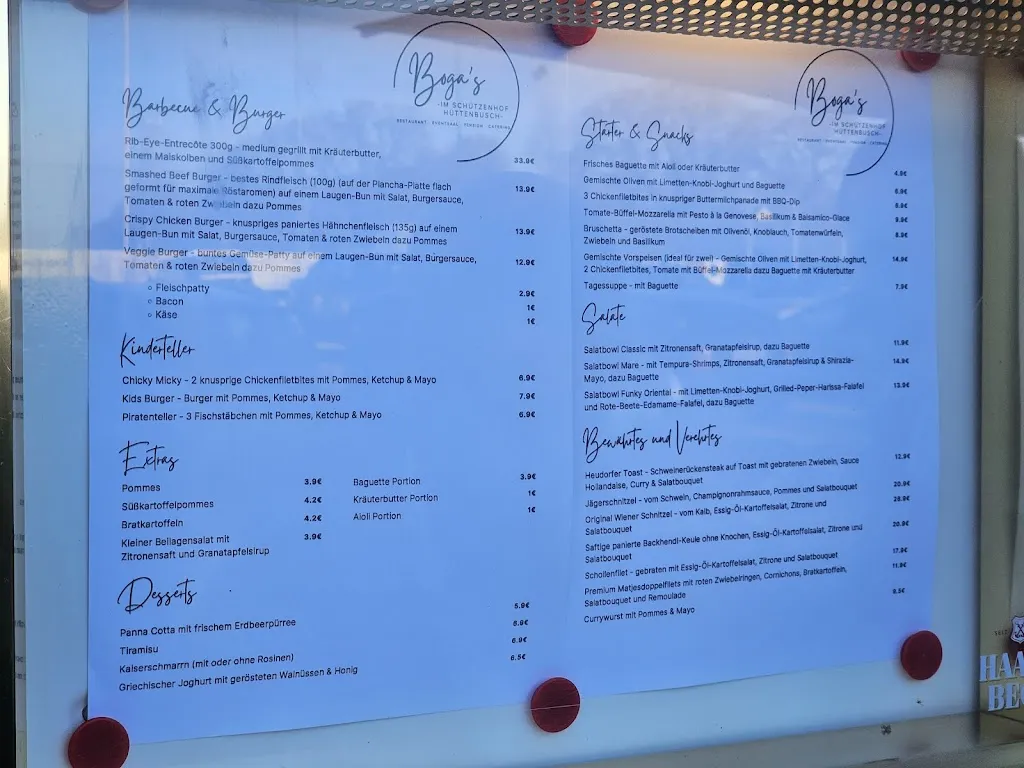 Boga's
-IM SCHÜTZENHOF
HÜTTENBUSCH-
RESTAURANT · EVENTSAAL · PENSION · CATERING
Barbecue & Burger
Rib-Eye-Entrecôte 300g - medium gegrillt mit Kräuterbutter,
einem Maiskolben und Süßkartoffelpommes 33.9€
Smashed Beef Burger - bestes Rindfleisch (100g) (auf der Plancha-Platte flach
geformt für maximale Röstaromen) auf einem Laugen-Bun mit Salat, Burgersauce, 13.9€
Tomaten & roten Zwiebeln dazu Pommes
Crispy Chicken Burger - knuspriges paniertes Hähnchenfleisch (135g) auf einem
Laugen-Bun mit Salat, Burgersauce, Tomaten & roten Zwiebeln dazu Pommes 13.9€
Veggie Burger - buntes Gemüse-Patty auf einem Laugen-Bun mit Salat, Burgersauce, 12.9€
Tomaten & roten Zwiebeln dazu Pommes
Fleischpatty 2.9€
Bacon 1€
Käse 1€
Kinderteller
Chicky Micky - 2 knusprige Chickenfiletbites mit Pommes, Ketchup & Mayo 6.9€
Kids Burger - Burger mit Pommes, Ketchup & Mayo 7.9€
Piratenteller - 3 Fischstäbchen mit Pommes, Ketchup & Mayo 6.9€
Extras
Pommes 3.9€
Süßkartoffelpommes 4.2€
Bratkartoffeln 4.2€
Kleiner Beilagensalat mit 3.9€
Zitronensaft und Granatapfelsirup
Baguette Portion 3.9€
Kräuterbutter Portion 1€
Aioli Portion 1€
Desserts
Panna Cotta mit frischem Erdbeerpürree 5.9€
Tiramisu 6.9€
Kaiserschmarrn (mit oder ohne Rosinen) 6.9€
Griechischer Joghurt mit gerösteten Walnüssen & Honig 6.5€
Boga's
-IM SCHÜTZENHOF
HÜTTENBUSCH-
RESTAURANT · EVENTSAAL · PENSION · CATERING
Starter & Snacks
Frisches Baguette mit Aioli oder Kräuterbutter 4.9€
Gemischte Oliven mit Limetten-Knobi-Joghurt und Baguette 6.9€
3 Chickenfiletbites in knuspriger Buttermilchpanade mit BBQ-Dip 6.9€
Tomate-Büffel-Mozzarella mit Pesto à la Genovese, Basilikum & Balsamico-Glace 9.9€
Bruschetta - geröstete Brotscheiben mit Olivenöl, Knoblauch, Tomatenwürfeln, 8.9€
Zwiebeln und Basilikum
Gemischte Vorspeisen (ideal für zwei) - Gemischte Oliven mit Limetten-Knobi-Joghurt, 14.9€
2 Chickenfiletbites, Tomate mit Büffel-Mozzarella dazu Baguette mit Kräuterbutter
Tagessuppe - mit Baguette 7.9€
Salate
Salatbowl Classic mit Zitronensaft, Granatapfelsirup, dazu Baguette 11.9€
Salatbowl Mare - mit Tempura-Shrimps, Zitronensaft, Granatapfelsirup & Shirazie- 14.9€
Mayo, dazu Baguette
Salatbowl Funky Oriental - mit Limetten-Knobi-Joghurt, Grilled-Peper-Harissa-Falafel 13.9€
und Rote-Beete-Edamame-Falafel, dazu Baguette
Bewährtes und Verehrtes
Heudorfer Toast - Schweinerückensteak auf Toast mit gebratenen Zwiebeln, Sauce 12.9€
Hollandaise, Curry & Salatbouquet
Jägerschnitzel - vom Schwein, Champignonrahmsauce, Pommes und Salatbouquet 20.9€
Original Wiener Schnitzel - vom Kalb, Essig-Öl-Kartoffelsalat, Zitrone und 28.9€
Salatbouquet
Saftige panierte Backhendl-Keule ohne Knochen, Essig-Öl-Kartoffelsalat, Zitrone und 20.9€
Salatbouquet
Schollenfilet - gebraten mit Essig-Öl-Kartoffelsalat, Zitrone und Salatbouquet 17.9€
Premium Matjesdoppelfilets mit roten Zwiebelringen, Cornichons, Bratkartoffeln, 11.9€
Salatbouquet und Remoulade
Currywurst mit Pommes & Mayo 9.5€
HAA
BE